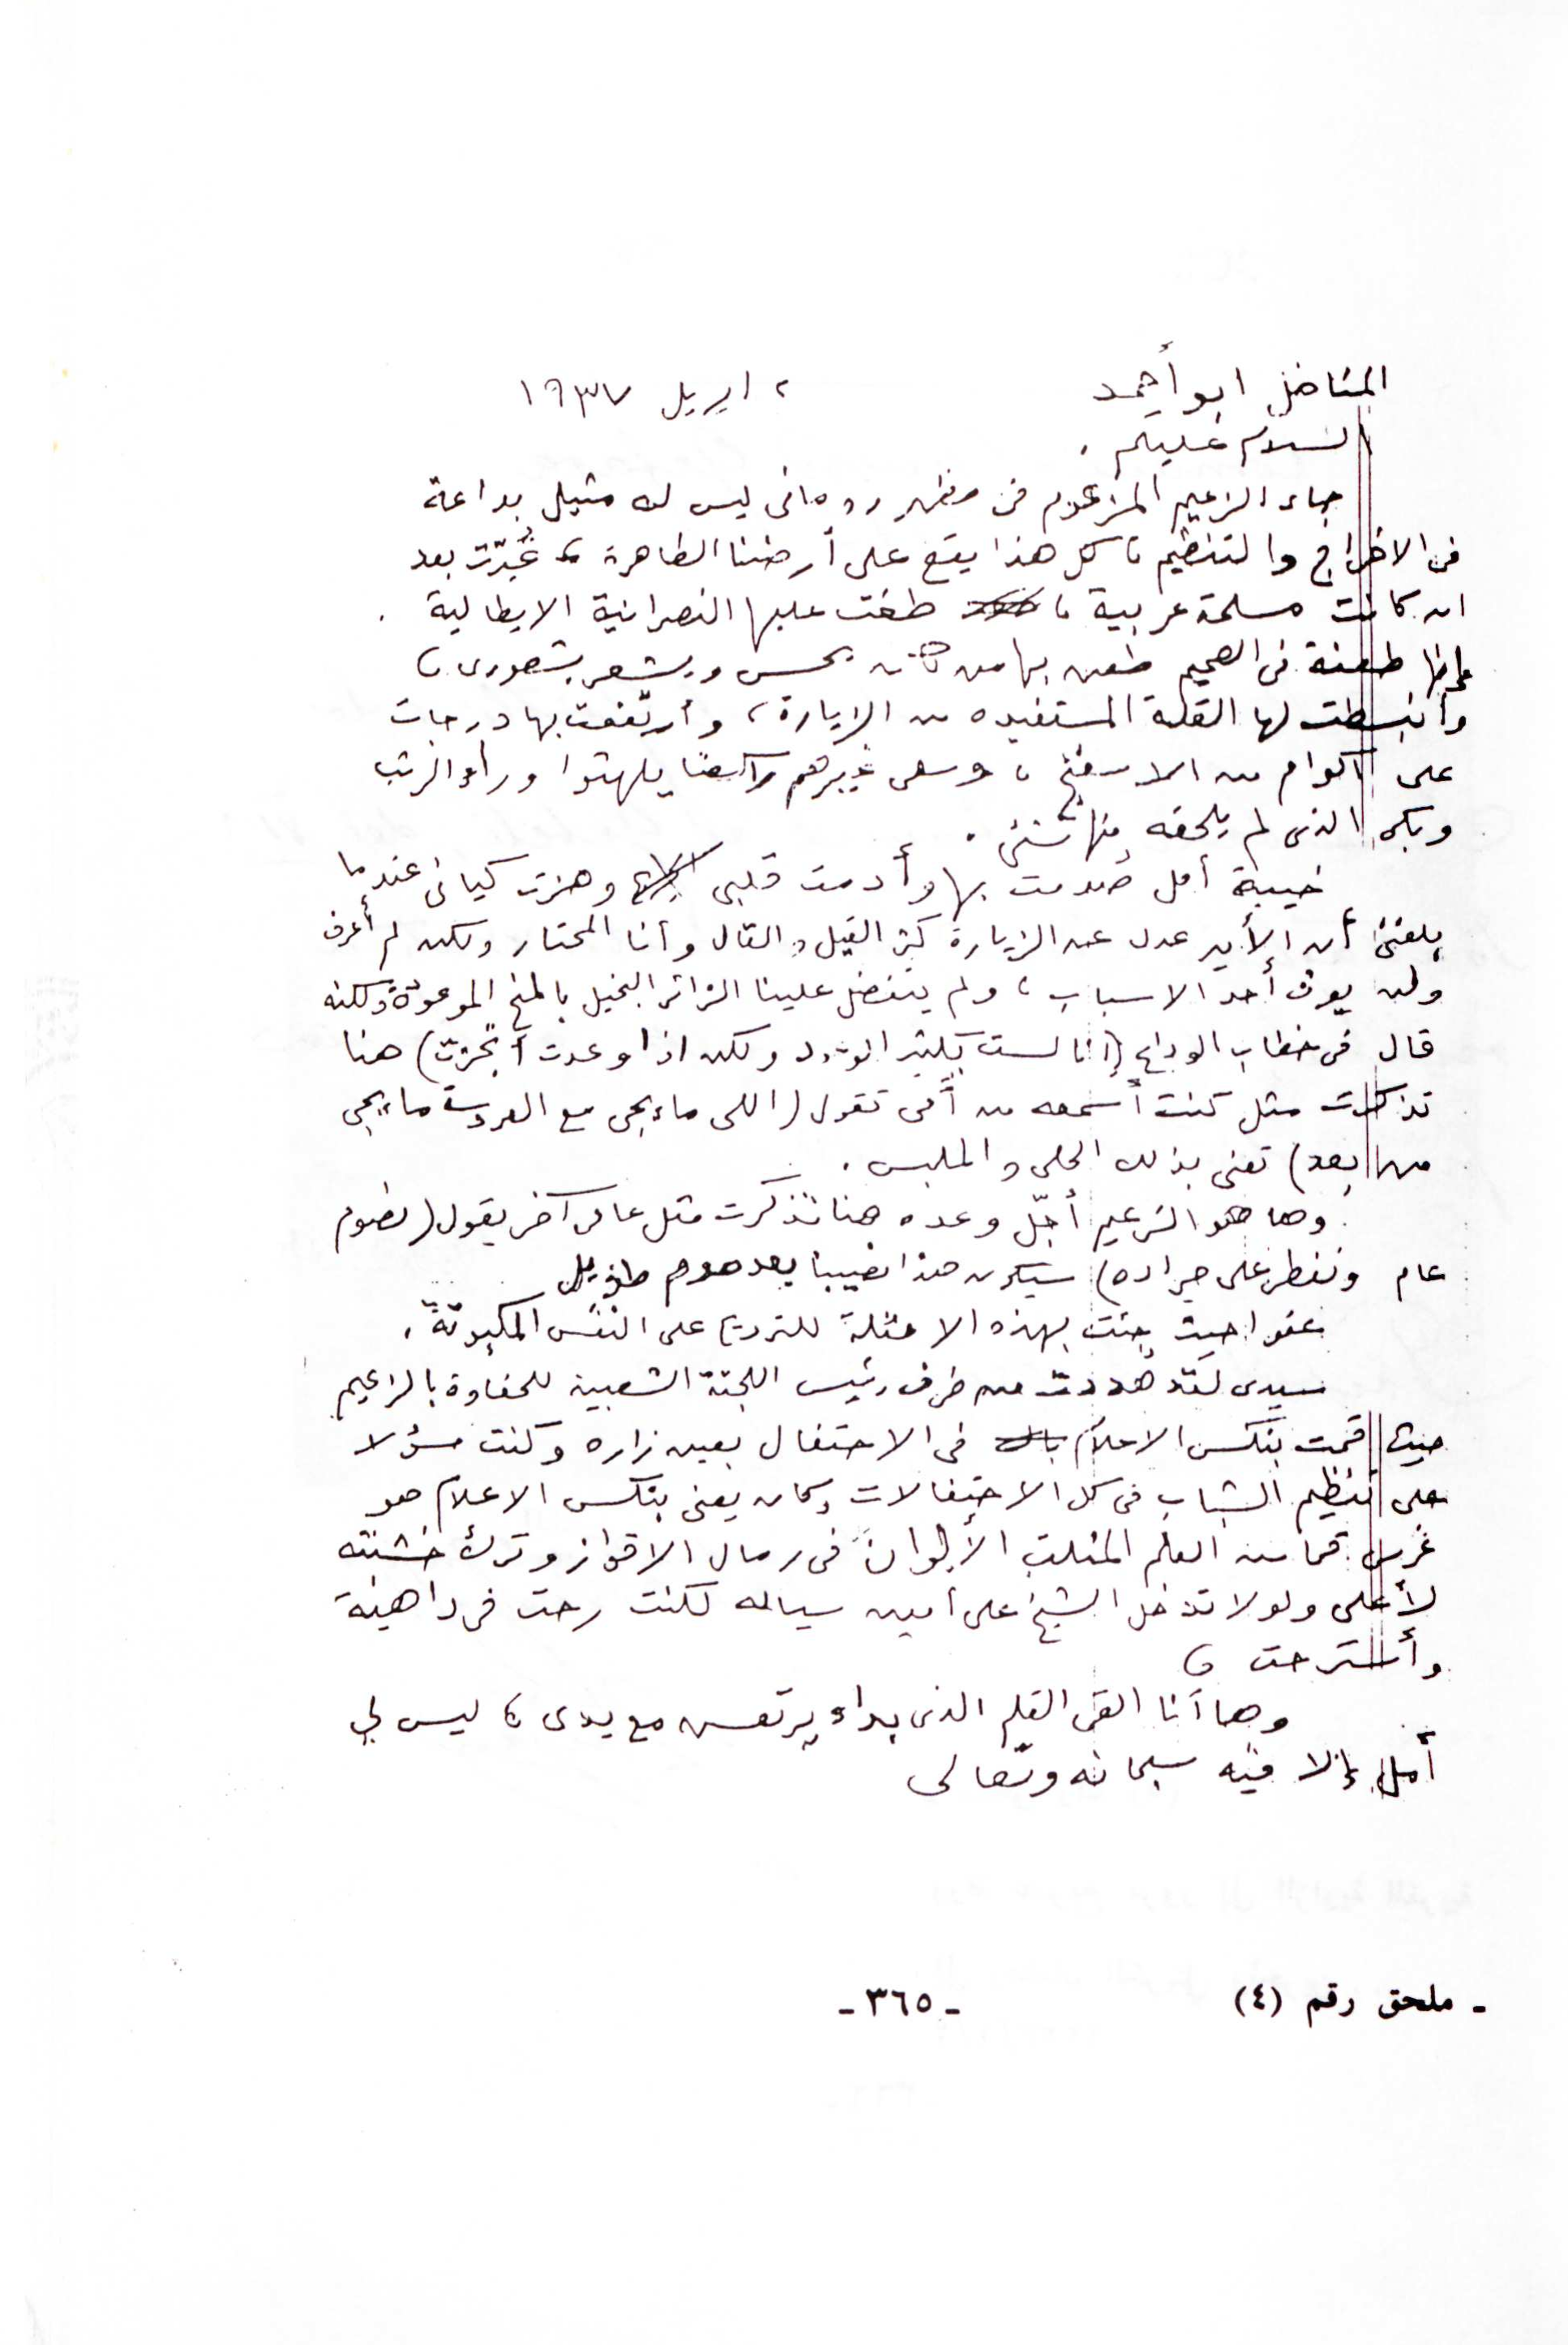 المناضل ابو أحمد ٢ ابريل ١٩٣٧
السلام عليكم .
جاء الزعيم المزعوم فى مظهر رومانى ليس له مثيل بداعة
فى الاخراج والتنظيم ، كل هذا يقع على أرضنا الطاهرة ، غُيرّت بعد
ان كانت مسلمة عربية ، طغت عليها النصرانية الايطالية .
إنها طعنة فى الصميم طعن بها من كان يحس ويشعر بشعورى ،
وأنبسطت لها القلة المستفيده من الزيارة ، وأرتفعت بها درجات
على اكوام من الاسفنج ، وسعى غيرهم راكضا يلهتوا وراء الرتب
وبكى الذى لم يلحقه منها شئ .
خيبة أمل صدمت بها وأدمت قلبى وهزت كيانى عندما
بلغنى أن الأمير عدل عن الزيارة كثر القيل والقال وأنا المحتار ولكن لم أعرف
ولن يعرف أحد الاسباب ، ولم يتفضل علينا الزائر البخيل بالمنح الموعودة ولكنه
قال فى خطاب الوداع (انا لست بكثير الوعود ولكن اذا وعدت أنجزت) هنا
تذكرت مثل كنت أسمعه من أمى تقول (اللى ما يجى مع العروسة ما يجى
من بعد) تعنى بذلك الحلى والملبس .
وها هو الزعيم أجّل وعده هنا تذكرت مثل عامى آخر يقول (نصوم
عام ونفطر على جراده) سيكون هذا نصيبنا بعد صوم طويل
عفوا حيث جئت بهذه الامثلة للترويح على النفس المكبوتة .
سيدى لقد هُددت من طرف رئيس اللجنة الشعبية للحفاوة بالزاعيم
حيث قمت بنكس الاعلام فى الاحتفال بعين زاره وكنت مسؤلا
على تنظيم الشباب فى كل الاحتفالات وكان يعنى بنكس الاعلام هو
غرس قماش العلم المثلث الألوان فى رمال الاقواز وترك خشبته
لأعلى ولولا تدخل الشيخ على أمين سياله لكنت رحت فى داهية
وأسترحت ،
وها أنا القى القلم الذى بداء يرتعس مع يدى ، ليس لي
أمل إلا فيه سبحانه وتعالى
- ملحق رقم (٤) - ٣٦٥ -